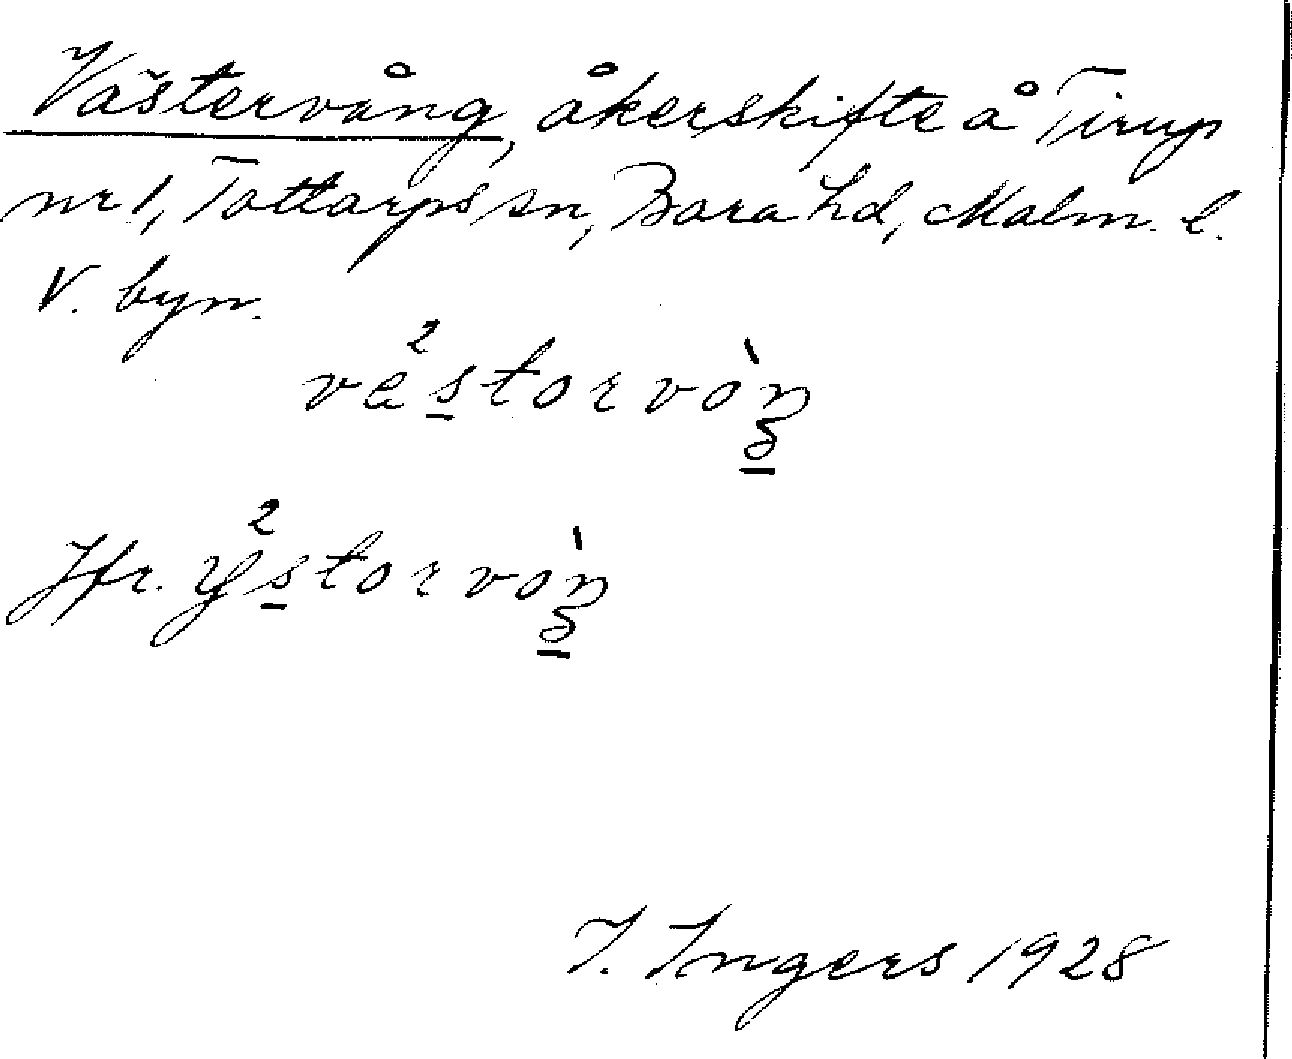 Västervång, åkerskifte å Tirup
nr 1, Tottarps sn, Bara hd, Malm. l.
V. byn.
væ²storvòŋ
Jfr. y²storvòŋ
I. Ingers 1928